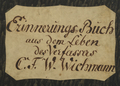 Erinnerungs-Buch
aus dem Leben
des Verfassers
C. F. W. Wichmann